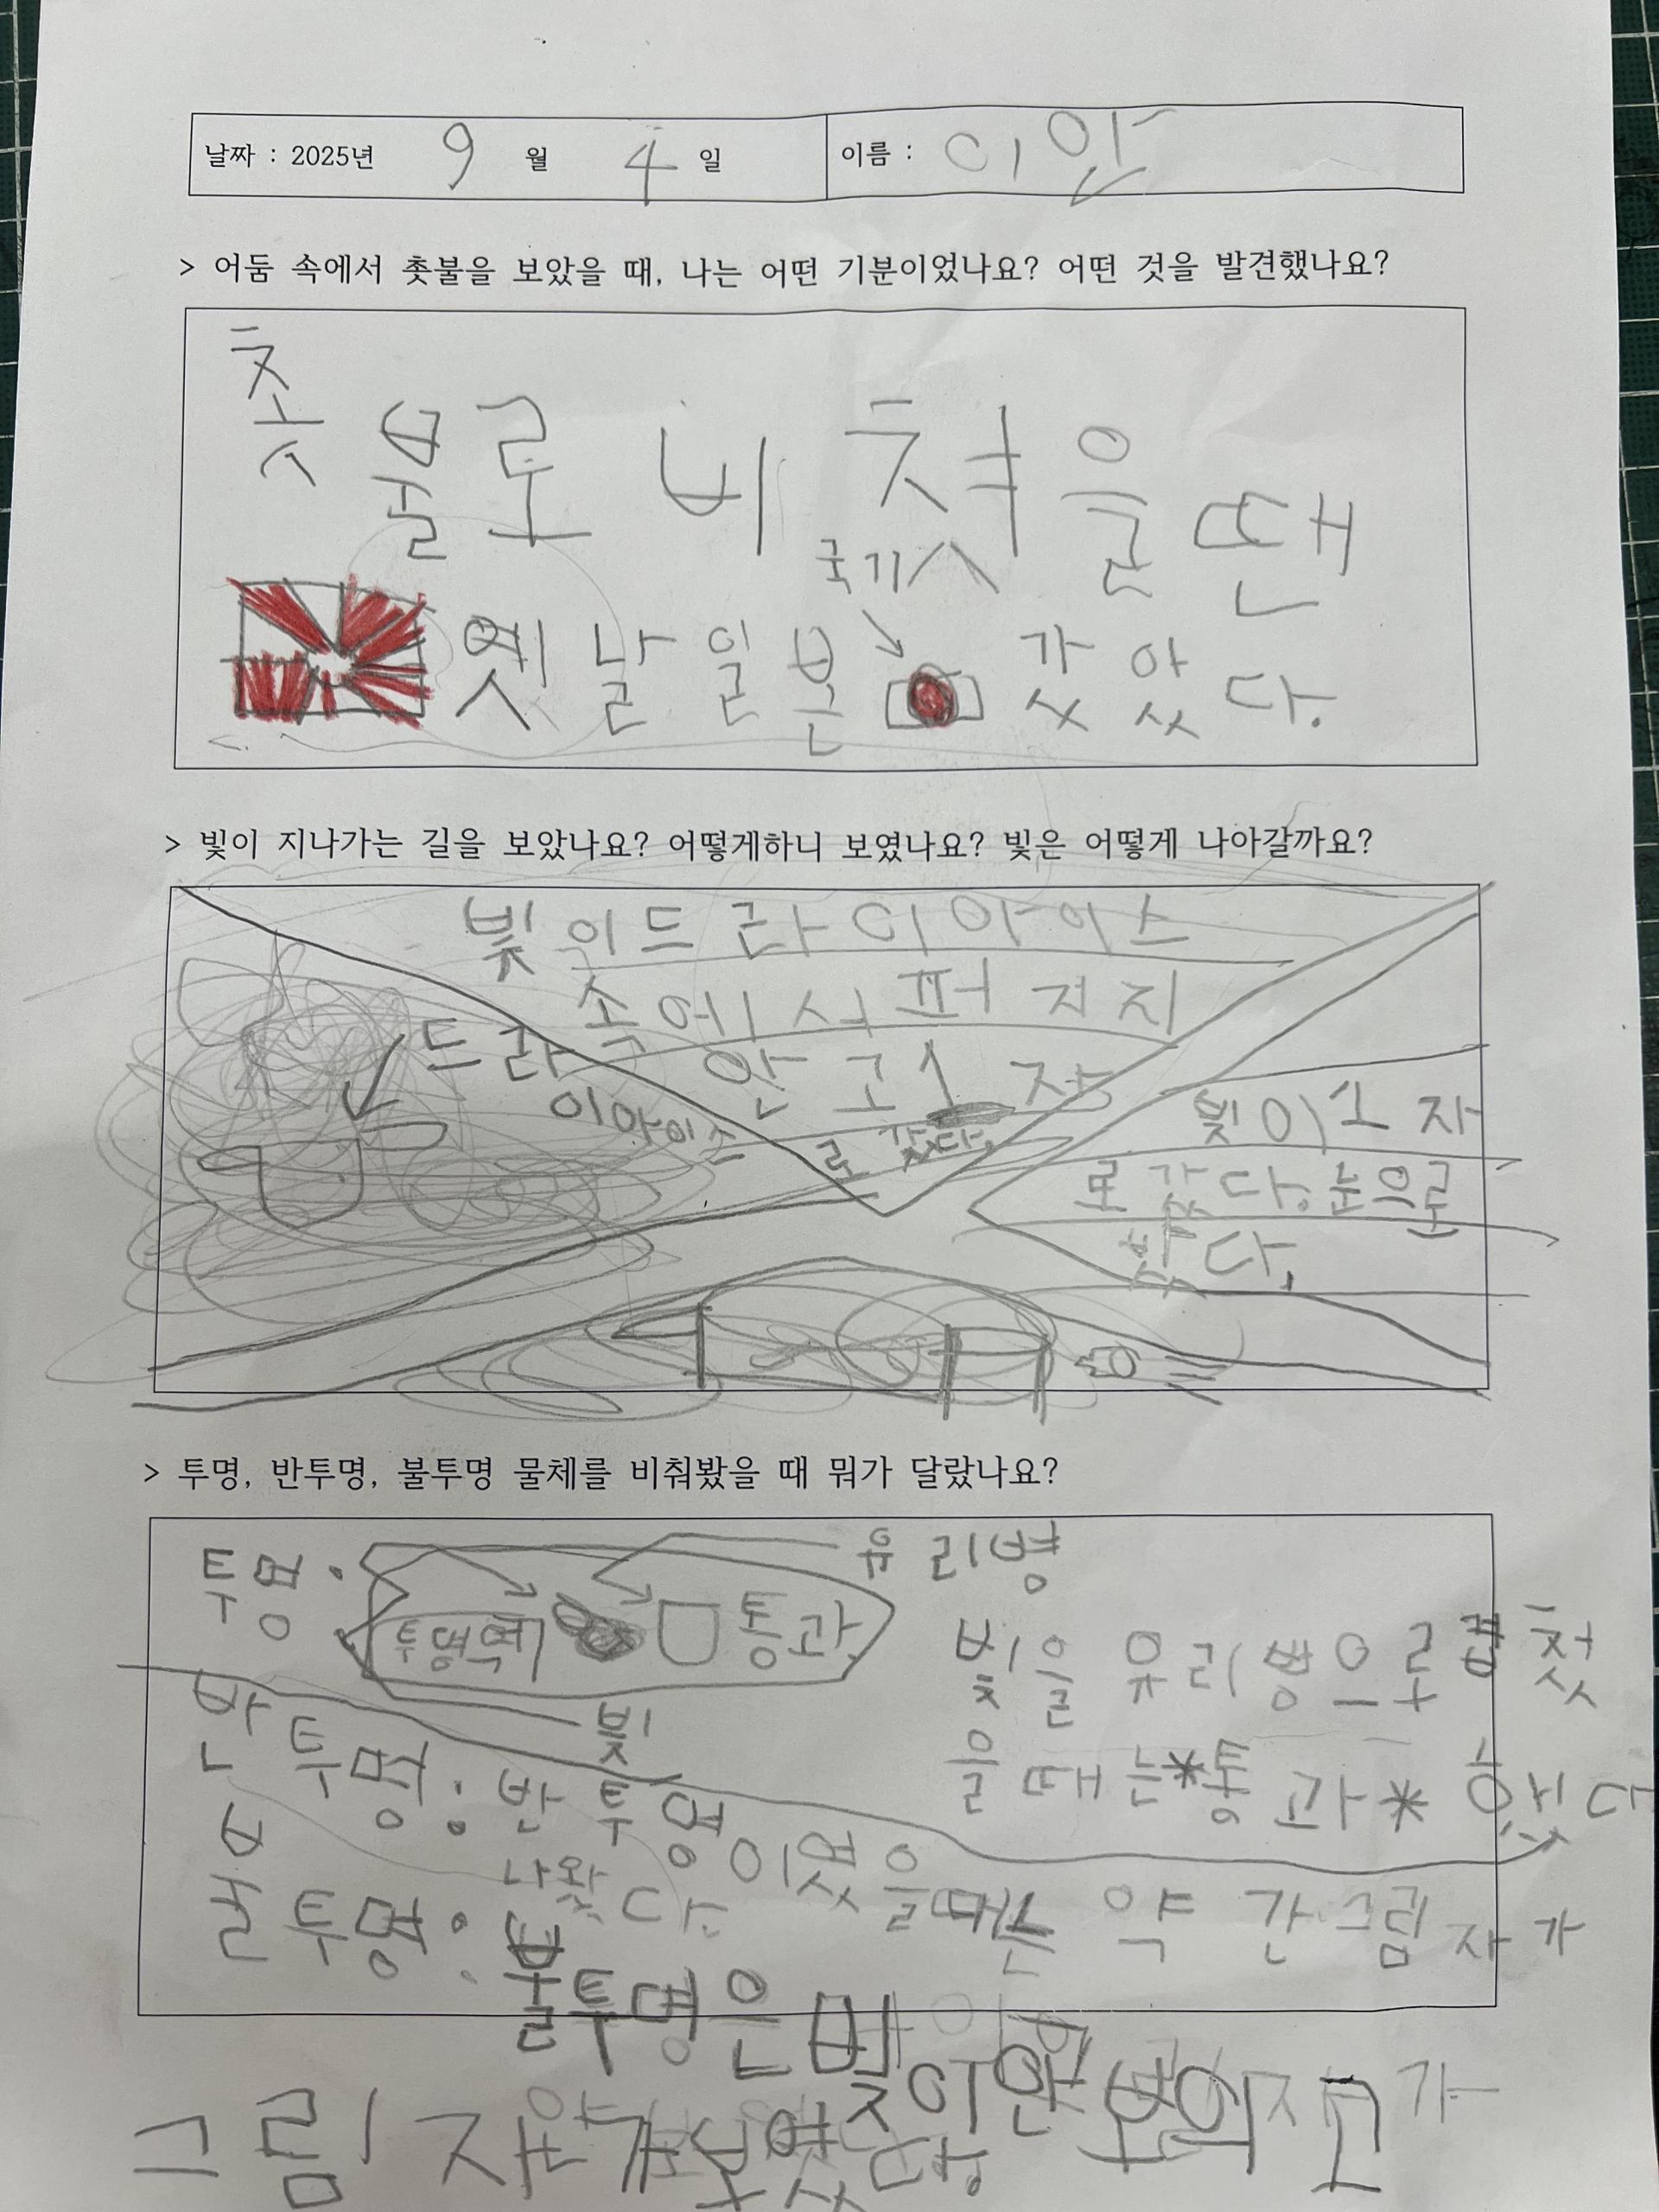 날짜 : 2025년 9 월 4 일 이름 : 이안
> 어둠 속에서 촛불을 보았을 때, 나는 어떤 기분이었나요? 어떤 것을 발견했나요?
촛불로 비쳤을 땐
국기
옛날 일본 갗았다.
> 빛이 지나가는 길을 보았나요? 어떻게하니 보였나요? 빛은 어떻게 나아갈까요?
빛이드라이아이스
속에서 퍼지지
안고 1자
로 갔다.
드라
이아이스
빛이 1자
로 갔다. 눈으로
봤다.
> 투명, 반투명, 불투명 물체를 비춰봤을 때 뭐가 달랐나요?
투명:
유리병
투명역시
통과
빛
빛을 유리병으로 비첫
을 때는*통과* 했다
반투명: 반투명이였을때는 약간그림자가
나왔다.
불투명: 불투명은 빛이안보이고
그림자가보였다.